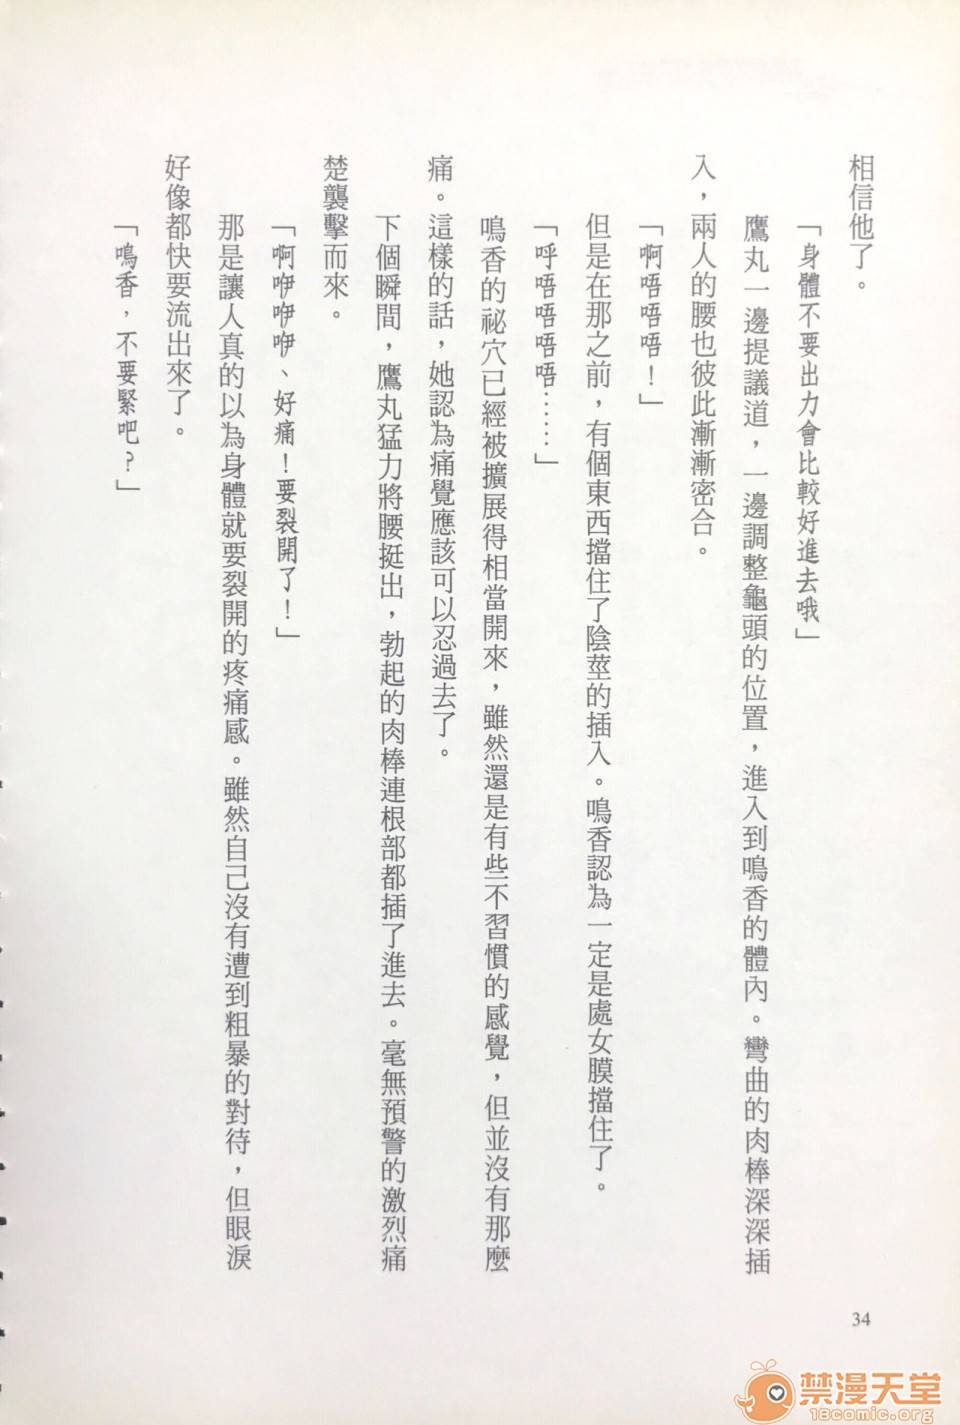 相信他了。
「身體不要出力會比較好進去哦」
鷹丸一邊提議道，一邊調整龜頭的位置，進入到鳴香的體內。彎曲的肉棒深深插
入，兩人的腰也彼此漸漸密合。
「啊唔唔唔！」
但是在那之前，有個東西擋住了陰莖的插入。鳴香認為一定是處女膜擋住了。
「呼唔唔唔唔……」
鳴香的祕穴已經被擴展得相當開來，雖然還是有些不習慣的感覺，但並沒有那麼
痛。這樣的話，她認為痛覺應該可以忍過去了。
下個瞬間，鷹丸猛力將腰挺出，勃起的肉棒連根部都插了進去。毫無預警的激烈痛
楚襲擊而來。
「啊咿咿咿、好痛！要裂開了！」
那是讓人真的以為身體就要裂開的疼痛感。雖然自己沒有遭到粗暴的對待，但眼淚
好像都快要流出來了。
「鳴香，不要緊吧？」
34
禁漫天堂
18comic.org